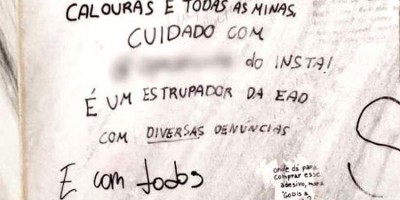 CALOURAS E TODAS AS MINAS,
CUIDADO COM
do INSTA!
É UM ESTRUPADOR DA EAD
COM DIVERSAS DENÚNCIAS
E com todos
onde dá para
comprar esse
adesivo, mana